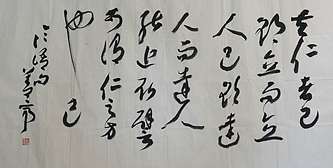 夫仁者己
欲立而立
人己欲達
而達人
能近取譬
可謂仁之方
也已